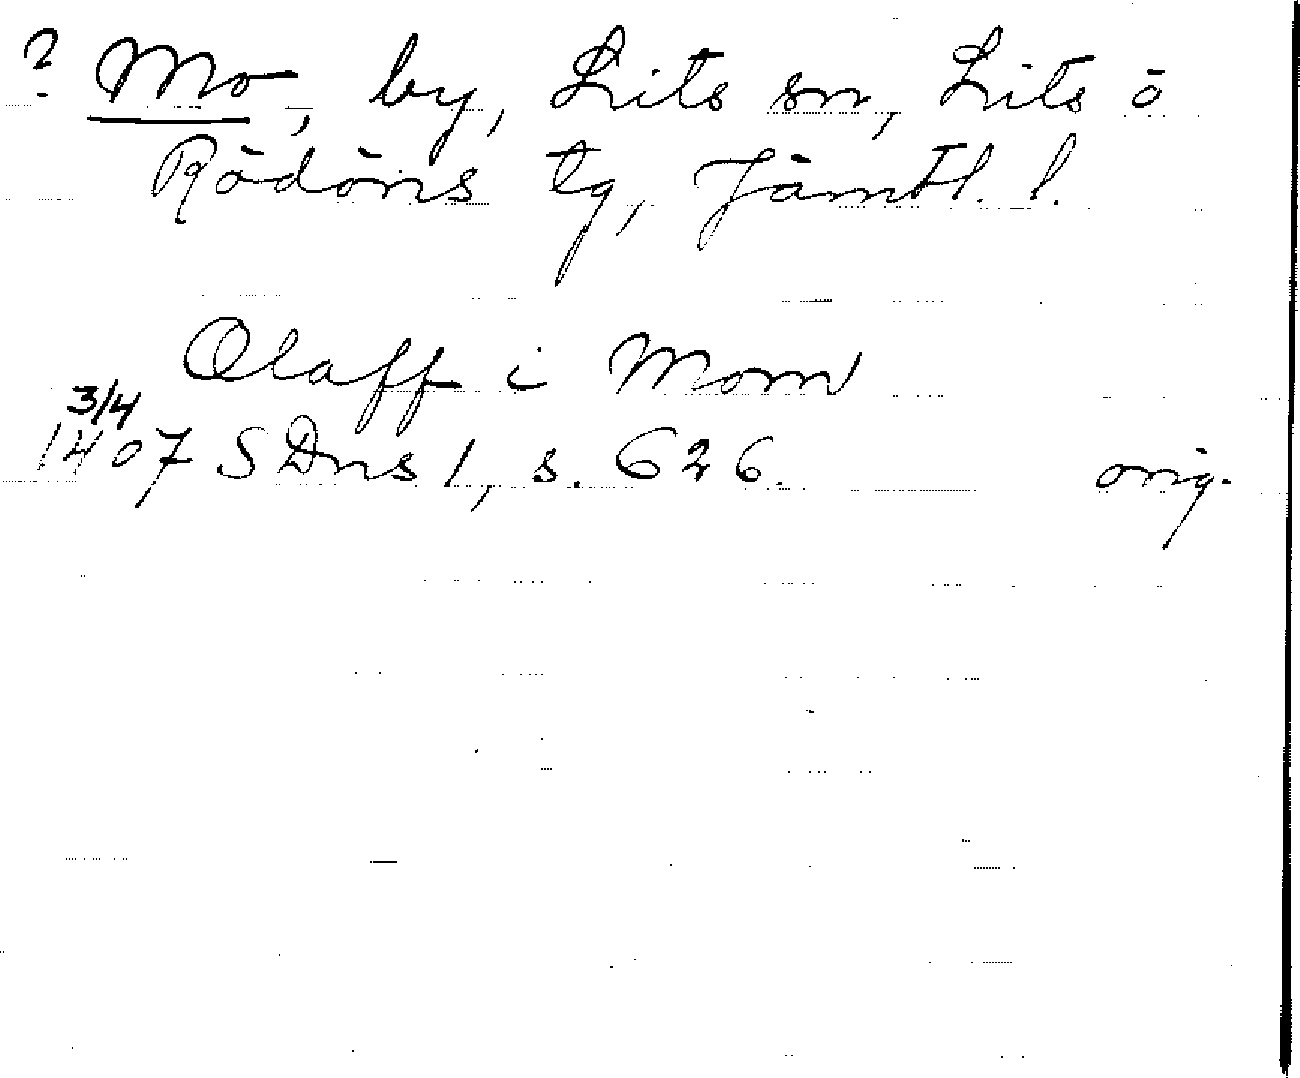 ? Mo, by, Lits sn, Lits ö
Rödöns tg, Jämtl. l.
Olaff i Mom
3/4
1407 SDns 1, s. 626. orig.